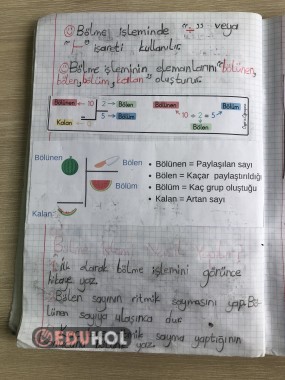 Bölme işleminde "÷" veya
" " işareti kullanılır.
Bölme işleminin elemanlarını "bölünen,
bölen, bölüm, kalan" oluşturur.
Bölünen 10 2 Bölen
5 Bölüm
Kalan
Bölünen Bölüm
10 ÷ 2 = 5
Bölen
Bölünen Bölen
Bölüm
Kalan
• Bölünen = Paylaşılan sayı
• Bölen = Kaçar paylaştırıldığı
• Bölüm = Kaç grup oluştuğu
• Kalan = Artan sayı
İlk olarak bölme işlemini görünce
yaz.
Bölen sayının ritmik saymasını yap. Bö-
lünen sayıya ulaşınca dur.
ritmik sayma yaptığının
yaz.
EDUHOL